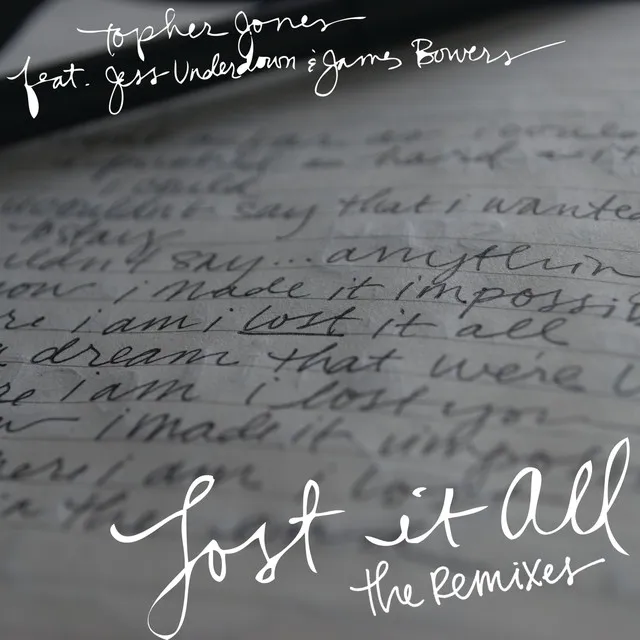 topher Jones
feat. Jess Underdown & James Bowers
hard
i could
wouldn't say that i wante
say... anythin
i made it impossi
i am i lost it all
dream that we're
i am i lost you
i made it impo
here i am i lo
in the
Lost it All
the Remixes